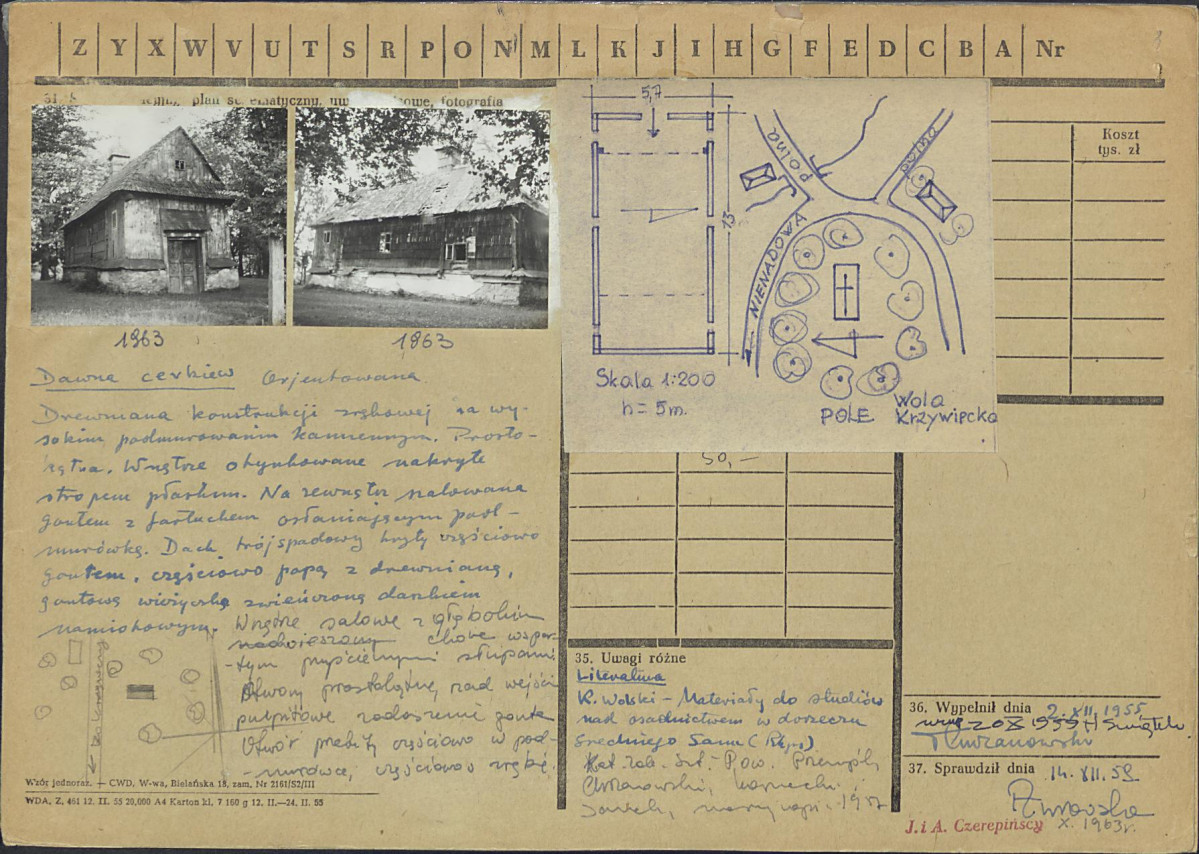 Z Y X W V U T S R P O N M L K J I H G F E D C B A Nr
plan fotografia
1963
1963
Dawna cerkiew Orientowana
Drewniana konstrukcji zrębowej na wy-
sokim podmurowaniu kamiennym. Prosto-
kątna. Wnętrze otynkowane nakryte
stropem płaskim. Na zewnątrz szalowana
gontem z fartuchem osłaniającym pod-
murówkę. Dach trójspadowy kryty częściowo
gontem, częściowo papą z drewnianą,
gontową wieżyczką zwieńczoną daszkiem
namiotowym. Wnętrze salowe z głębokim
nadwieszonym chórem wspar-
-tym przyściennymi słupami
Otwory prostokątne, nad wejściem
pulpitowe zadaszenie gont
Otwór przebity częściowo w pod-
-murówce, częściowo w zrębie.
Wzór jednoraz. — CWD, W-wa, Bielańska 18, zam. Nr 2161/S2/III
WDA, Z. 461 12. II. 55 20,000 A4 Karton kl. 7 160 g 12. II.—24. II. 55
5,7
13
Skala 1:200
h = 5m.
polna
polna
NIENADOWA
POLE
Wola
Krzywiecka
Koszt
tys. zł
50,—
35. Uwagi różne
Literatura
K. Wolski - Materiały do studiów
nad osadnictwem w dorzeczu
średniego Sanu
Kat. zab. Pow. Przemyśl,
Chrzanowski,
36. Wypełnił dnia 2. XII. 1955
37. Sprawdził dnia 14. XII. 59
X. 1963r.
J. i A. Czerepińscy